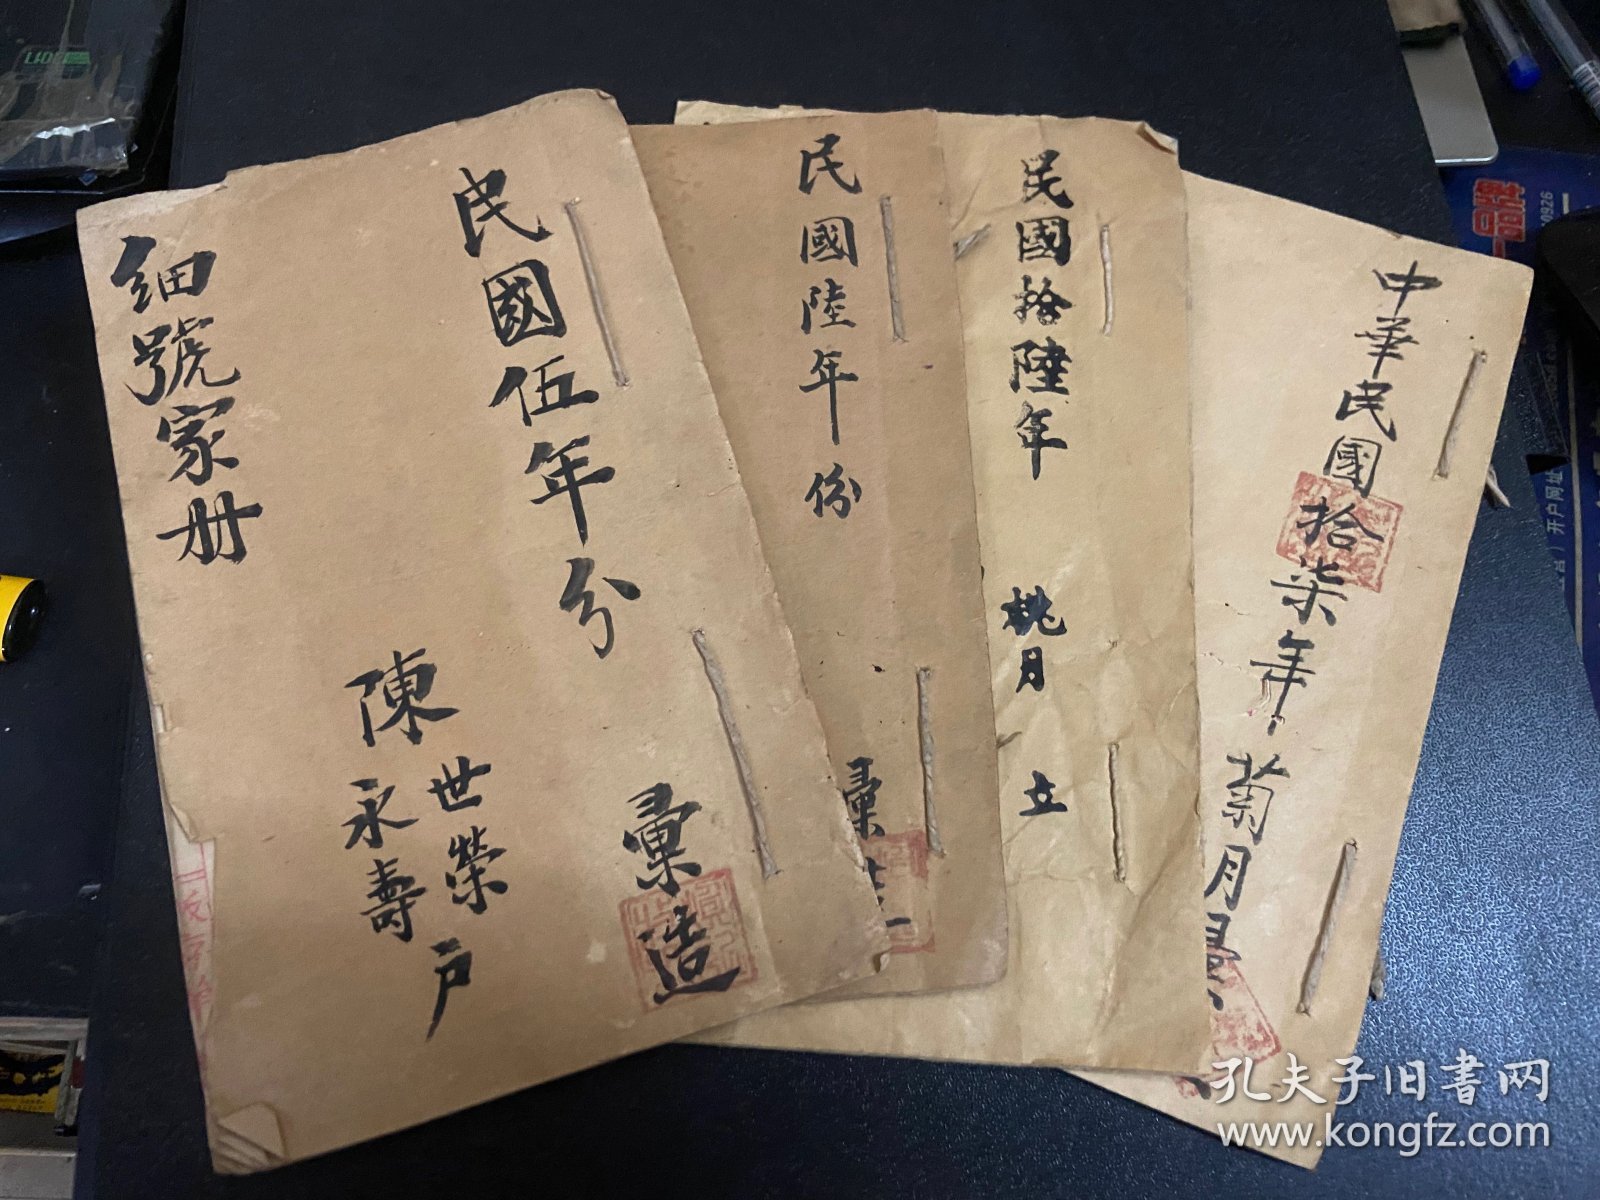 民國伍年分
彙造
細號家册
陳
世榮
永壽
户
民國陸年份
彙
民國拾陸年
桃月
立
中華民國拾柒年菊月
孔夫子旧书网
www.kongfz.com
开户网址